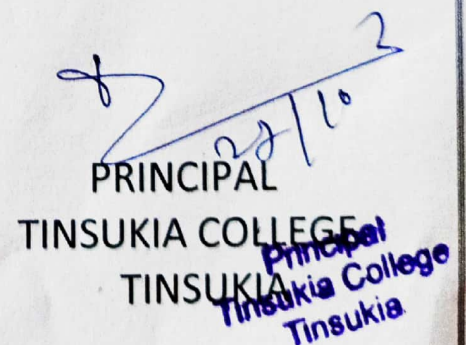 PRINCIPAL
TINSUKIA COLLEGE
TINSUKIA
Principal
Tinsukia College
Tinsukia